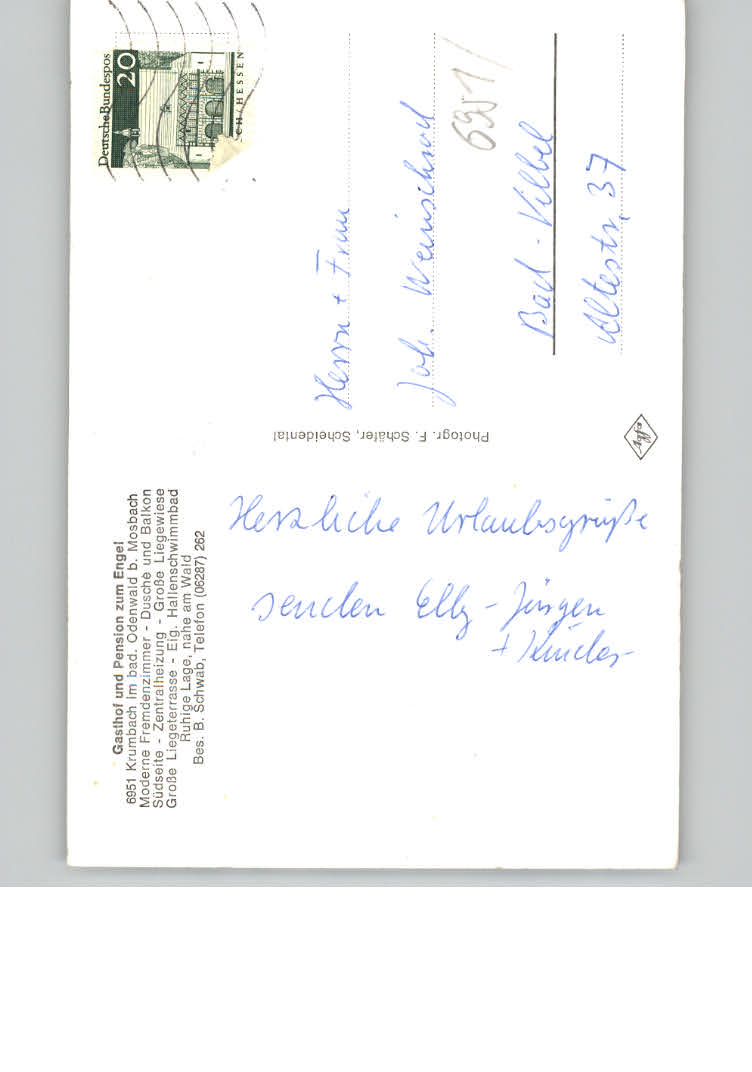 Gasthof und Pension zum Engel
6951 Krumbach im bad. Odenwald b. Mosbach
Moderne Fremdenzimmer - Dusche und Balkon
Südseite - Zentralheizung - Große Liegewiese
Große Liegeterrasse - Eig. Hallenschwimmbad
Ruhige Lage, nahe am Wald
Bes. B. Schwab, Telefon (06287) 262
Herzliche Urlaubsgrüße
senden Elly - Jürgen
+ Kinder
Photogr. F. Schäfer, Scheidental
Agfa
Deutsche Bundespos
20
CH/HESSEN
Herrn + Frau
Joh.
6951/
Bad - Vilbel
Altestr. 37